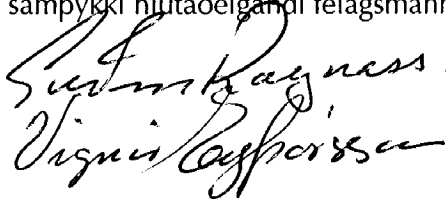 samþykki hlutaðeigandi félagsmann
Ragnarss
Vignir Eyþórsson